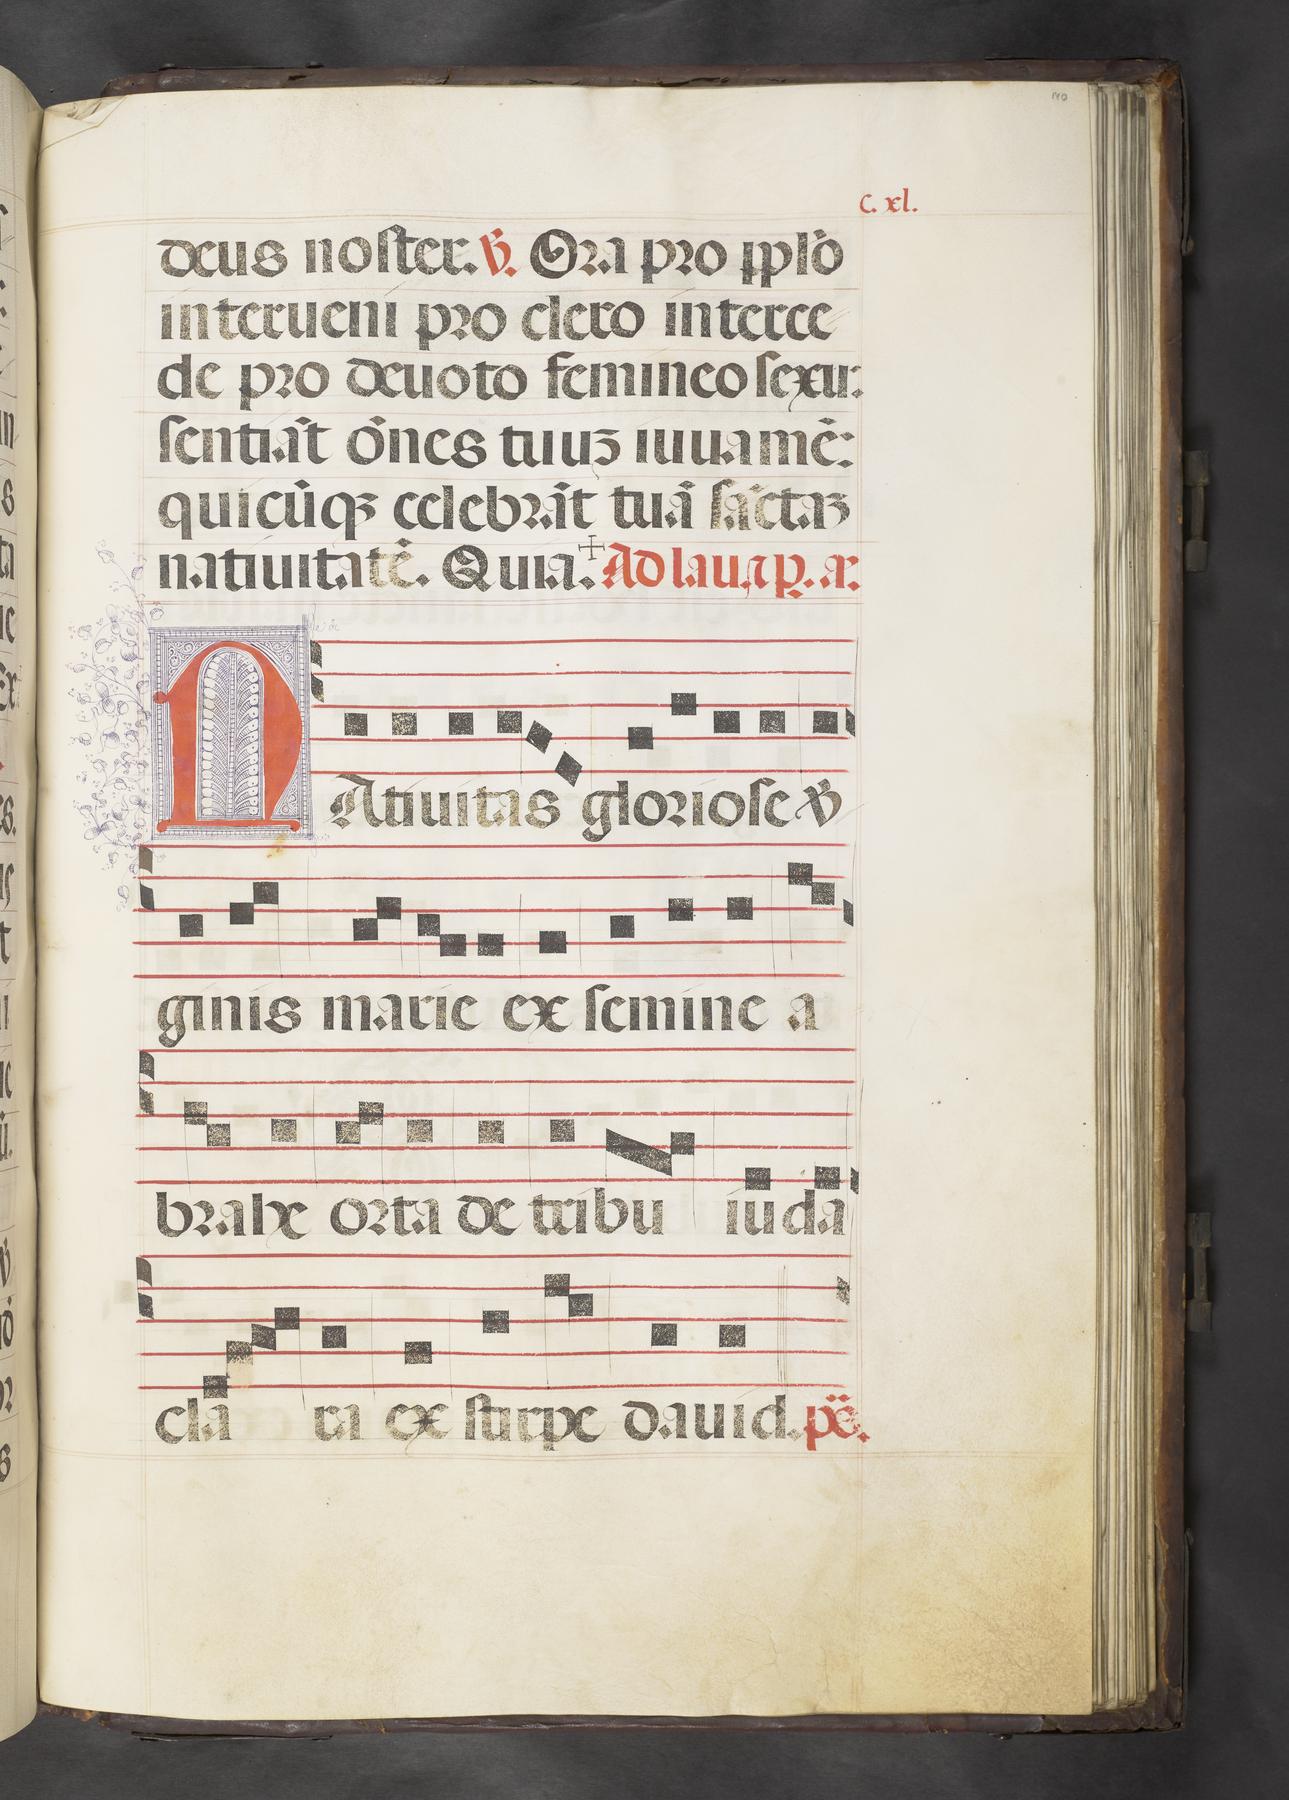 140
c. xl.
deus noster. ℣. Ora pro pplō
interueni pro clero interce
de pro deuoto femineo sexu:
sentiāt ōnes tuuꝫ iuuamē:
quicūqꝫ celebrāt tuā sāctaꝫ
natiuitatē. Quia. Ad laudꝭ. a.
NAtiuitas gloriose ℣
ginis marie ex semine a
brahe orta de tribu iuda
cla ra ex stirpe dauid. ps̄.